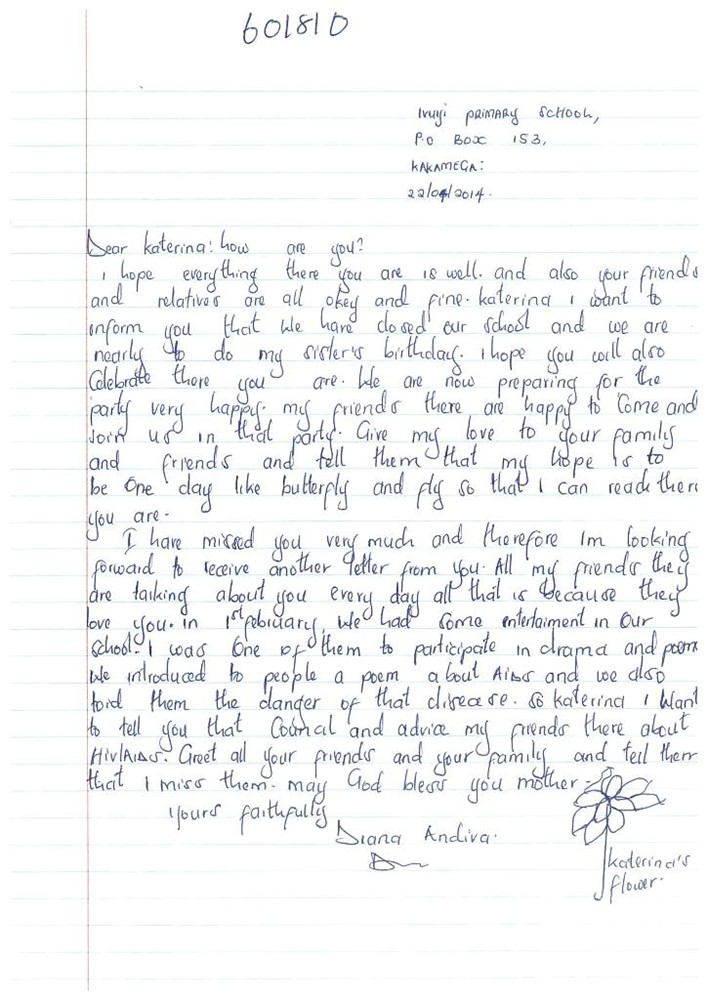 601810
Ivuyi PRIMARY SCHOOL,
P.O BOX 153,
KAKAMEGA:
22/04/2014.
Dear katerina! how are you?
i hope everything there you are is well. and also your friends
and relatives are all okey and fine. katerina i want to
inform you that we have closed our school and we are
nearly to do my sister's birthday. i hope you will also
Celebrate there you are. We are now preparing for the
party very happy. my friends there are happy to Come and
Join us in that party. Give my love to your family
and friends and tell them that my hope is to
be One day like butterfly and fly so that I can reach there
you are.
I have missed you very much and therefore Im looking
forward to receive another letter from you. All my friends they
are talking about you every day all that is because they
love you. in 1st february, We had some entertaiment in Our
school. I was One of them to participate in drama and poem
We introduced to people a poem about AIDS and we also
told them the danger of that disease. so katerina i Want
to tell you that Councal and advice my friends there about
HIV/AIDS. Greet all your friends and your family and tell them
that i miss them. may God bless you mother.
Yours faithfully
Diana Andiva.
katerina's
flower.